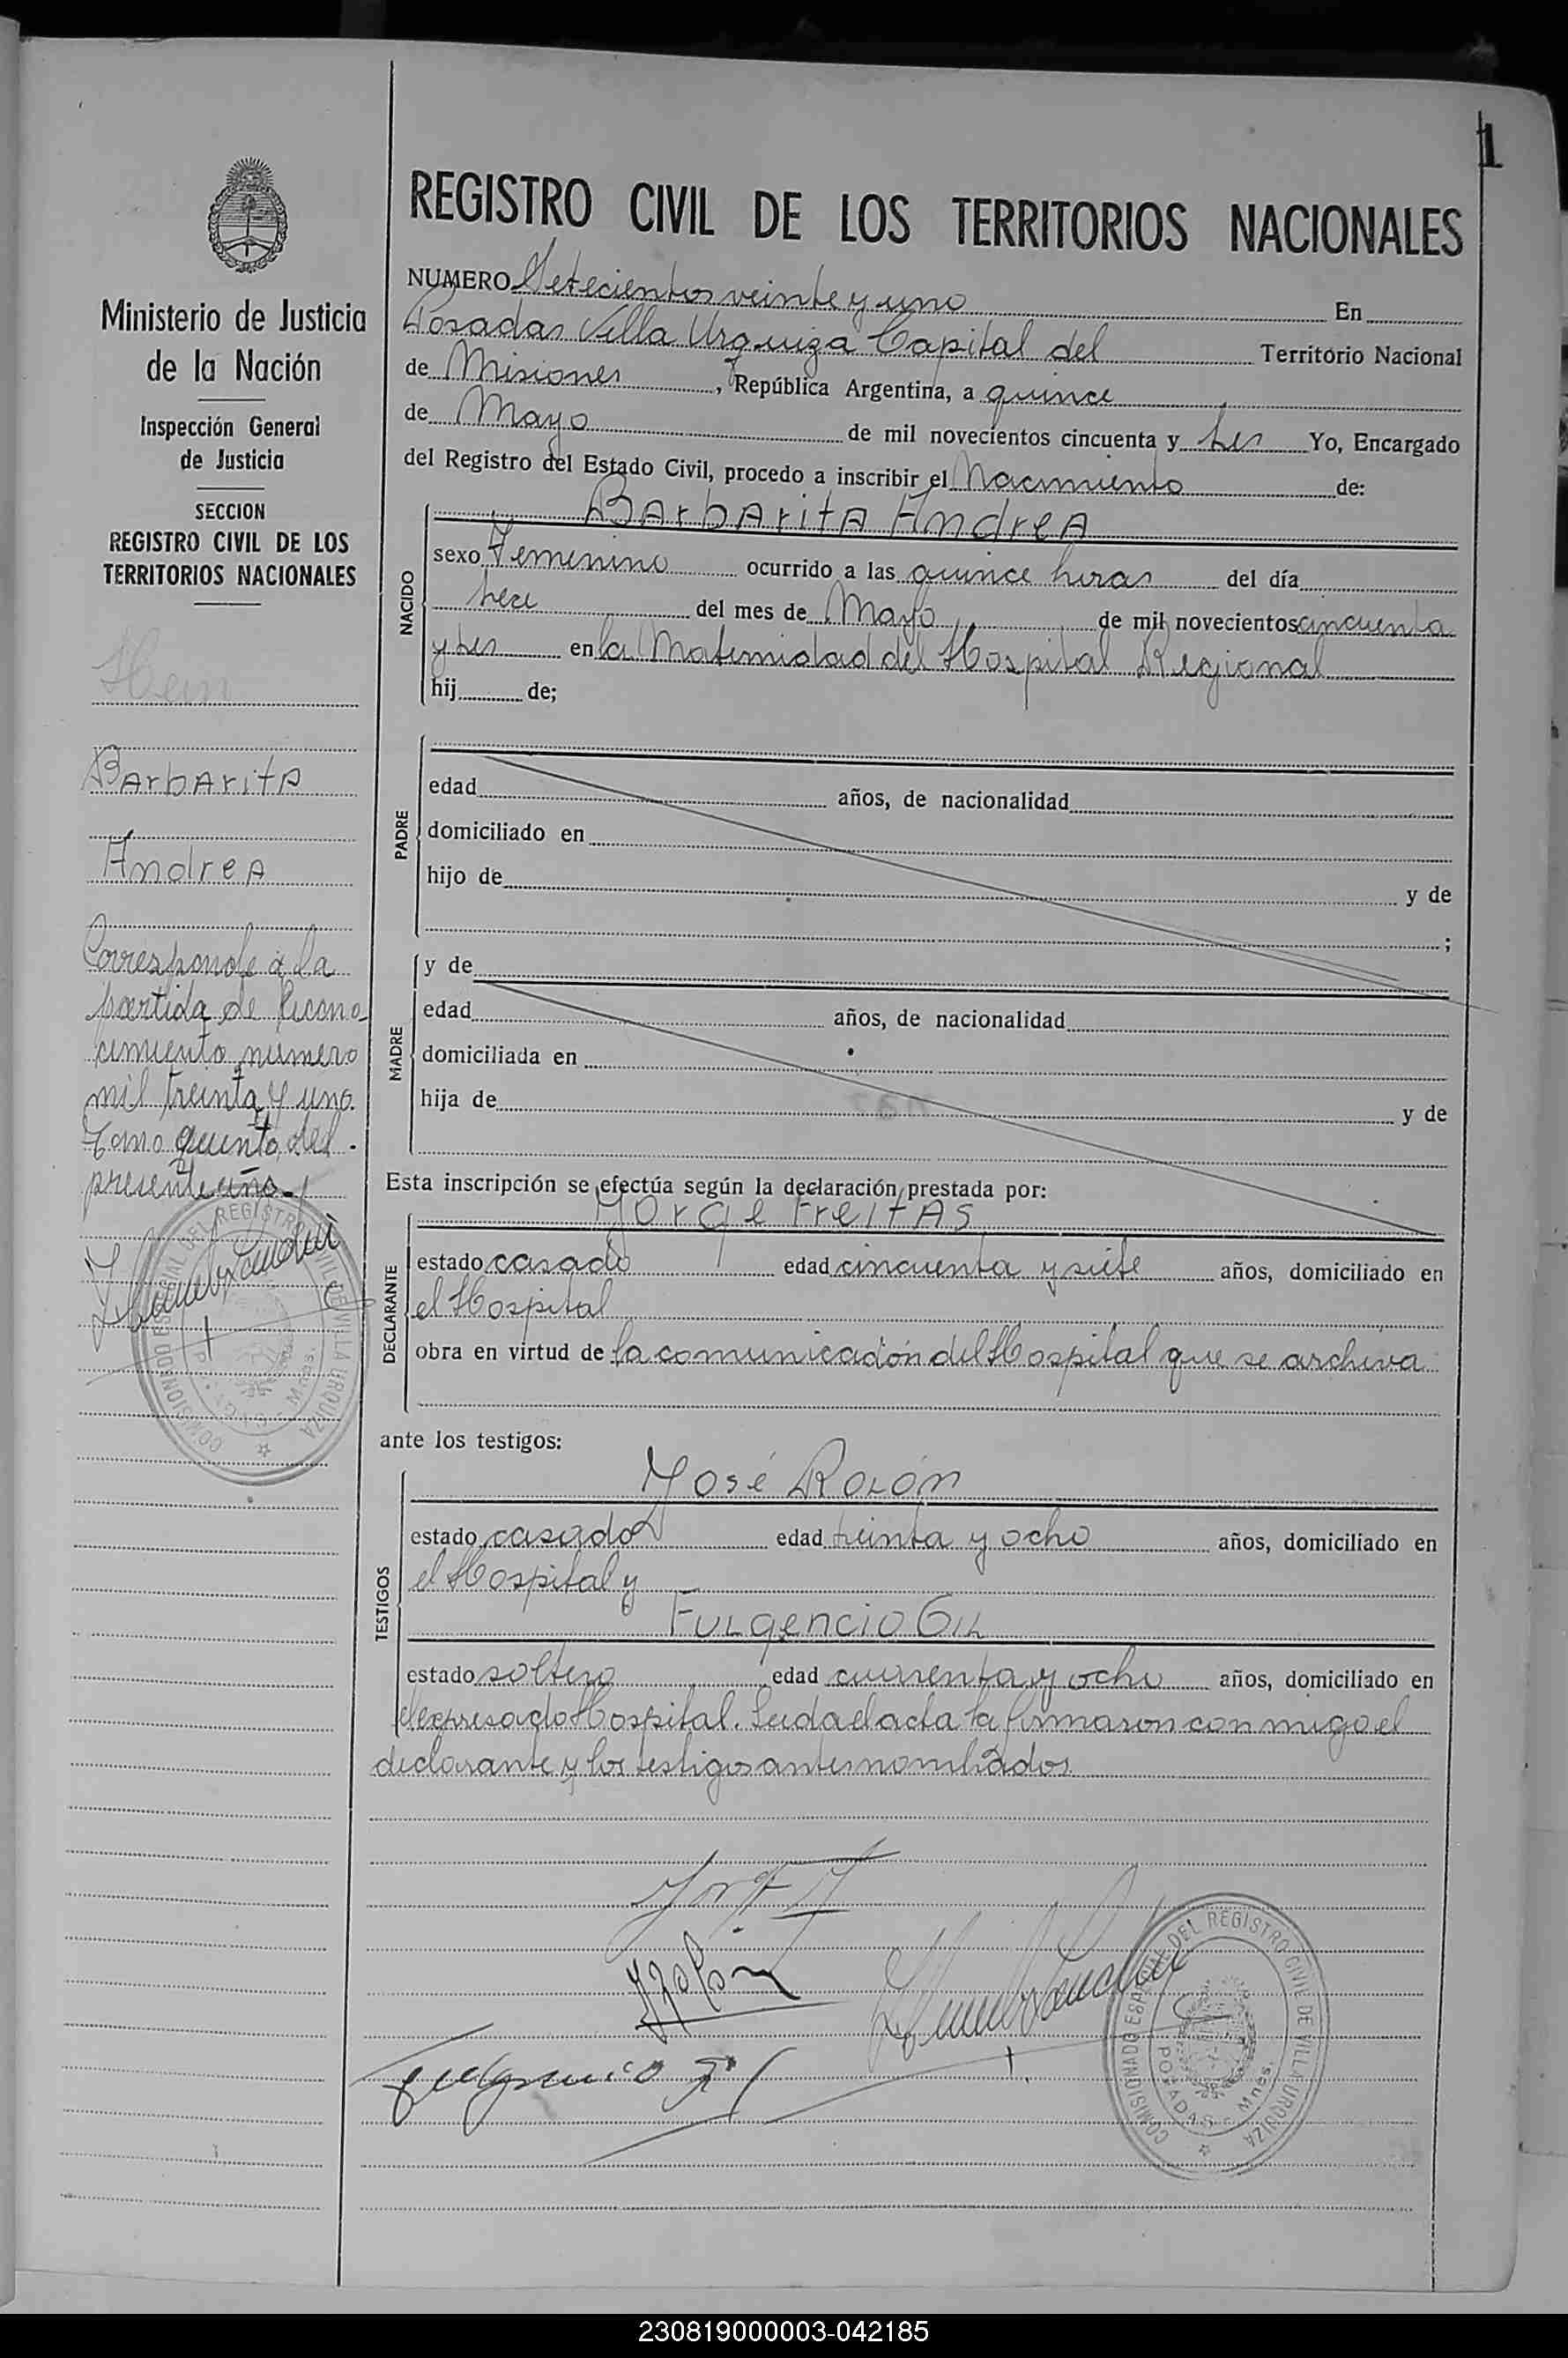 1
REGISTRO CIVIL DE LOS TERRITORIOS NACIONALES
NUMERO Setecientos veinte y uno En
Posadas Villa Urquiza Capital del Territorio Nacional
de Misiones, República Argentina, a quince
de Mayo de mil novecientos cincuenta y tres Yo, Encargado
del Registro del Estado Civil, procedo a inscribir el Nacimiento de:
NACIDO
Barbarita Andrea
sexo Femenino ocurrido a las quince horas del día
trece del mes de Mayo de mil novecientos cincuenta
y tres en la Maternidad del Hospital Regional
hij de;
PADRE
edad años, de nacionalidad
domiciliado en
hijo de y de
;
MADRE
y de
edad años, de nacionalidad
domiciliada en
hija de y de
Esta inscripción se efectúa según la declaración prestada por:
DECLARANTE
Jorge Freitas
estado casado edad cincuenta y siete años, domiciliado en
el Hospital
obra en virtud de la comunicación del Hospital que se archiva
ante los testigos:
TESTIGOS
José Rolón
estado casado edad treinta y ocho años, domiciliado en
el Hospital y
Fulgencio Gil
estado soltero edad cuarenta y ocho años, domiciliado en
el expresado Hospital. Leida el acta la firmaron con migo el
declarante y los testigos antes nombrados
Fulgencio Gil
COMISIONADO ESPECIAL DEL REGISTRO CIVIL DE VILLA URQUIZA
POSADAS - Mnes.
Ministerio de Justicia
de la Nación
Inspección General
de Justicia
SECCION
REGISTRO CIVIL DE LOS
TERRITORIOS NACIONALES
Hein
Barbarita
Andrea
Corresponde a la
partida de Recono-
cimiento número
mil treinta y uno
Tomo quinto del
presente año.-
COMISIONADO ESPECIAL DEL REGISTRO CIVIL DE VILLA URQUIZA
230819000003-042185